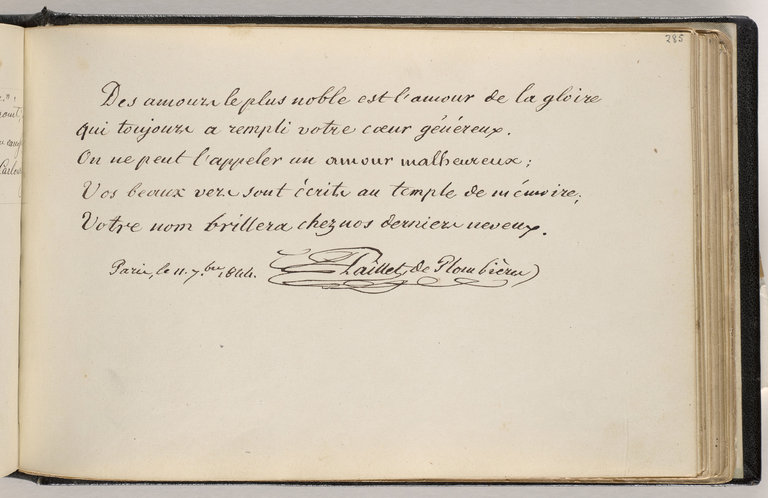 285
Des amours le plus noble est l'amour de la gloire
qui toujours a rempli votre cœur généreux.
On ne peut l'appeler un amour malheureux;
Vos beaux vers sont écrits au temple de mémoire;
Votre nom brillera chez nos derniers neveux.
Paris, le 11. 7.bre 1844. Paillet, de Plombières